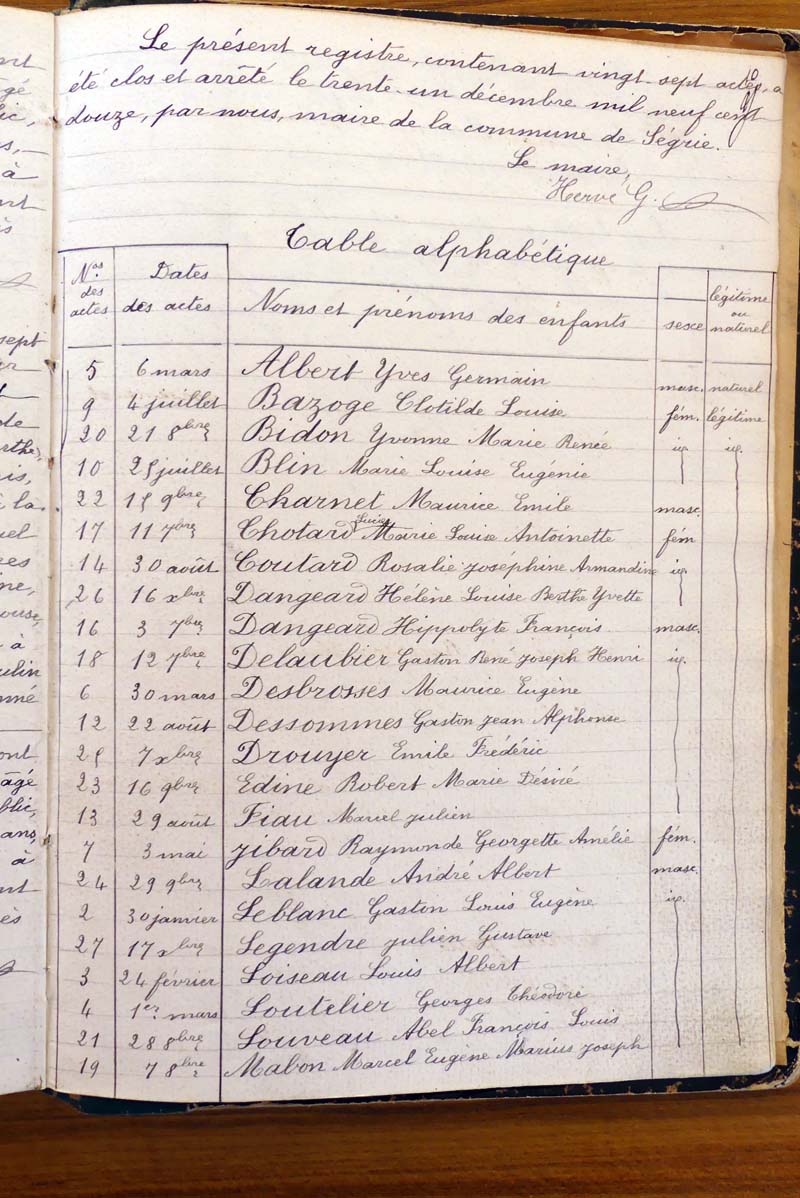 Le présent registre, contenant vingt-sept actes, a
été clos et arrêté le trente-un décembre mil neuf cent
douze, par nous, maire de la commune de Ségrie.
Le maire,
Hervé G.
Table alphabétique
Nos des actes | Dates des actes | Noms et prénoms des enfants | sexe | légitime ou naturel
5 | 6 mars | Albert Yves Germain | masc. | naturel
9 | 4 juillet | Bazoge Clotilde Louise | fém. | légitime
20 | 21 8bre | Bidon Yvonne Marie Renée | id. | id.
10 | 25 juillet | Blin Marie Louise Eugénie
22 | 15 9bre | Charnet Maurice Emile | masc.
17 | 11 7bre | Chotard Lucie Marie Louise Antoinette | fém
14 | 30 août | Coutard Rosalie Joséphine Armandine | id.
26 | 16 xbre | Dangeard Hélène Louise Berthe Yvette
16 | 3 7bre | Dangeard Hippolyte François | masc.
18 | 12 7bre | Delaubier Gaston René Joseph Henri | id.
6 | 30 mars | Desbrosses Maurice Eugène
12 | 22 août | Dessommes Gaston Jean Alphonse
25 | 7 xbre | Drouyer Emile Frédéric
23 | 16 9bre | Edine Robert Marie Désiré
13 | 29 août | Fiau Marcel Julien
7 | 3 mai | Jibard Raymonde Georgette Amélie | fém.
24 | 29 9bre | Lalande André Albert | masc.
2 | 30 janvier | Leblanc Gaston Louis Eugène | id.
27 | 17 xbre | Legendre Julien Gustave
3 | 24 février | Loiseau Louis Albert
4 | 1er mars | Loutelier Georges Théodore
21 | 28 8bre | Louveau Abel François Louis
19 | 7 8bre | Mabon Marcel Eugène Marius Joseph